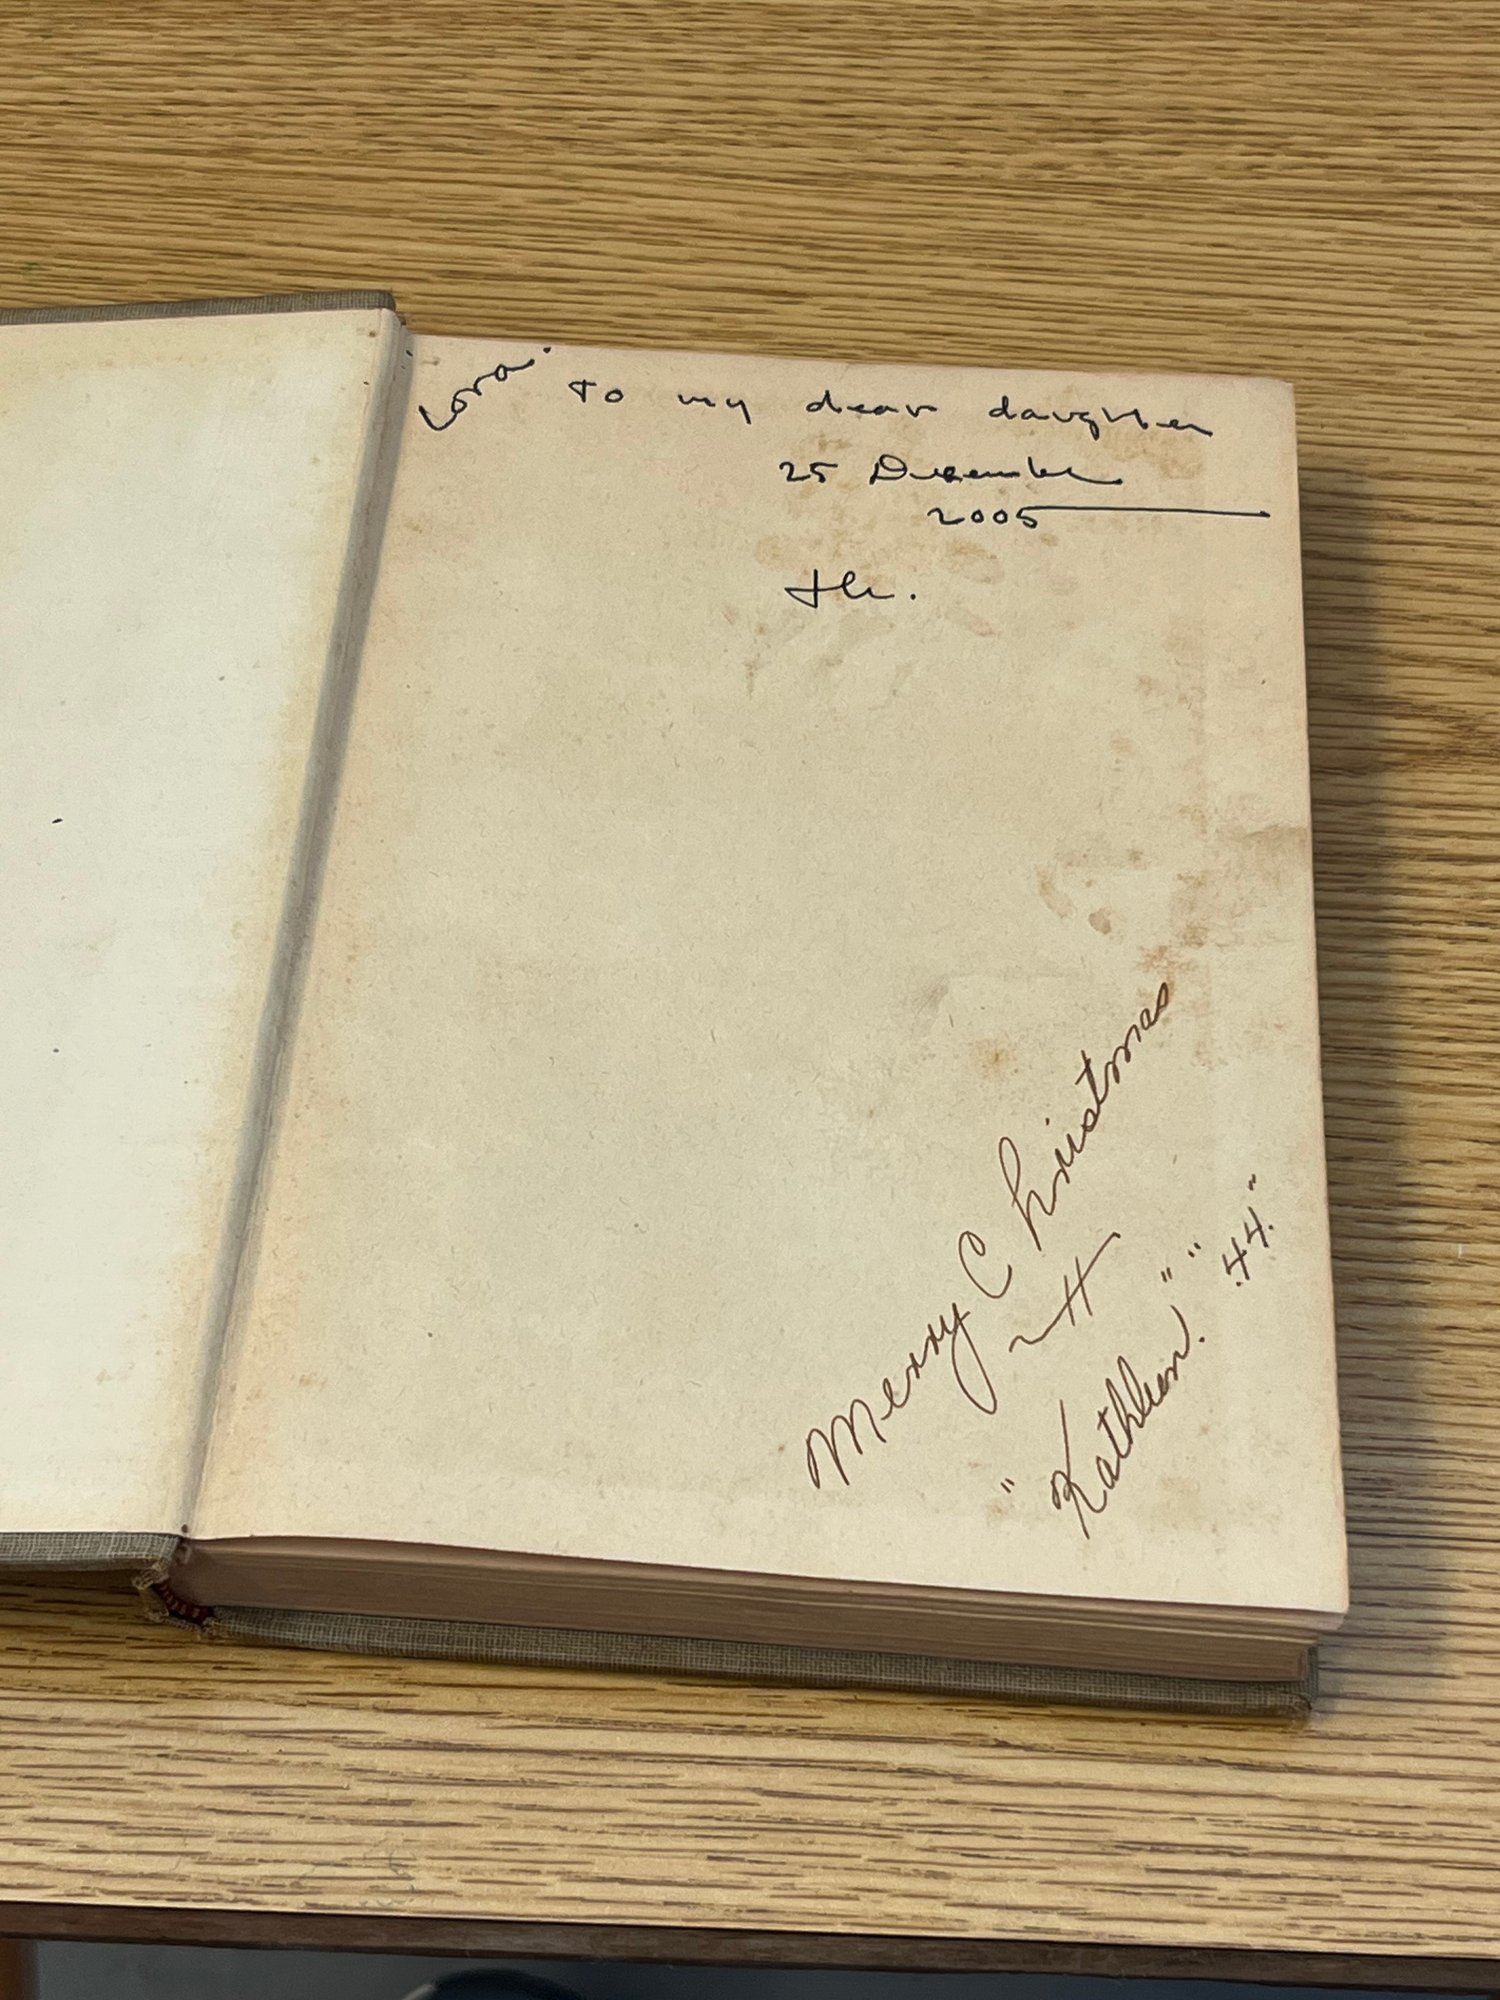 Lora. To my dear daughter
25 December
2005
Merry Christmas
"Kathleen." " " .44."